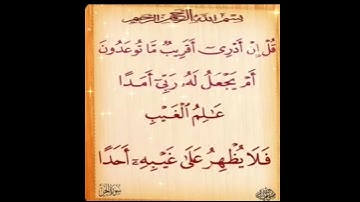 بسم الله الرحمن الرحيم
قُلْ إِنْ أَدْرِىٓ أَقَرِيبٌ مَّا تُوعَدُونَ
أَمْ يَجْعَلُ لَهُۥ رَبِّىٓ أَمَدًا
عَـٰلِمُ ٱلْغَيْبِ
فَلَا يُظْهِرُ عَلَىٰ غَيْبِهِۦٓ أَحَدًا
سورة الجن